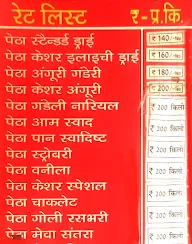 रेट लिस्ट र-प्र.कि.
पेठा स्टैन्डर्ड ड्राई ₹ 140/-
पेठा केशर इलाइची ड्राई ₹ 160/-
पेठा अंगूरी गंडेरी ₹ 180/-
पेठा केशर अंगूरी ₹ 200/-
पेठा गंडेली नारियल ₹ 200 किलो
पेठा आम स्वाद ₹ 200 किलो
पेठा पान स्वादिष्ट ₹ 200 किलो
पेठा स्ट्रोवरी ₹ 200 किलो
पेठा वनीला ₹ 200 किलो
पेठा केशर स्पेशल ₹ 200 किलो
पेठा चाकलेट ₹ 200 किलो
पेठा गोली रसभरी ₹ 200 किलो
पेठा मेवा संतरा ₹ 200 किलो